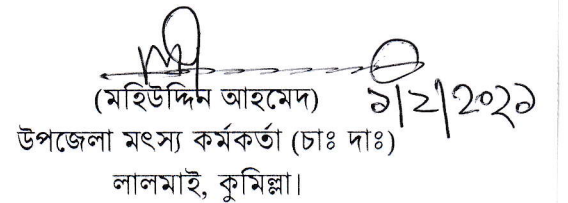 (মহিউদ্দিন আহমেদ) ১/২/২০২১
উপজেলা মৎস্য কর্মকর্তা (চাঃ দাঃ)
লালমাই, কুমিল্লা।